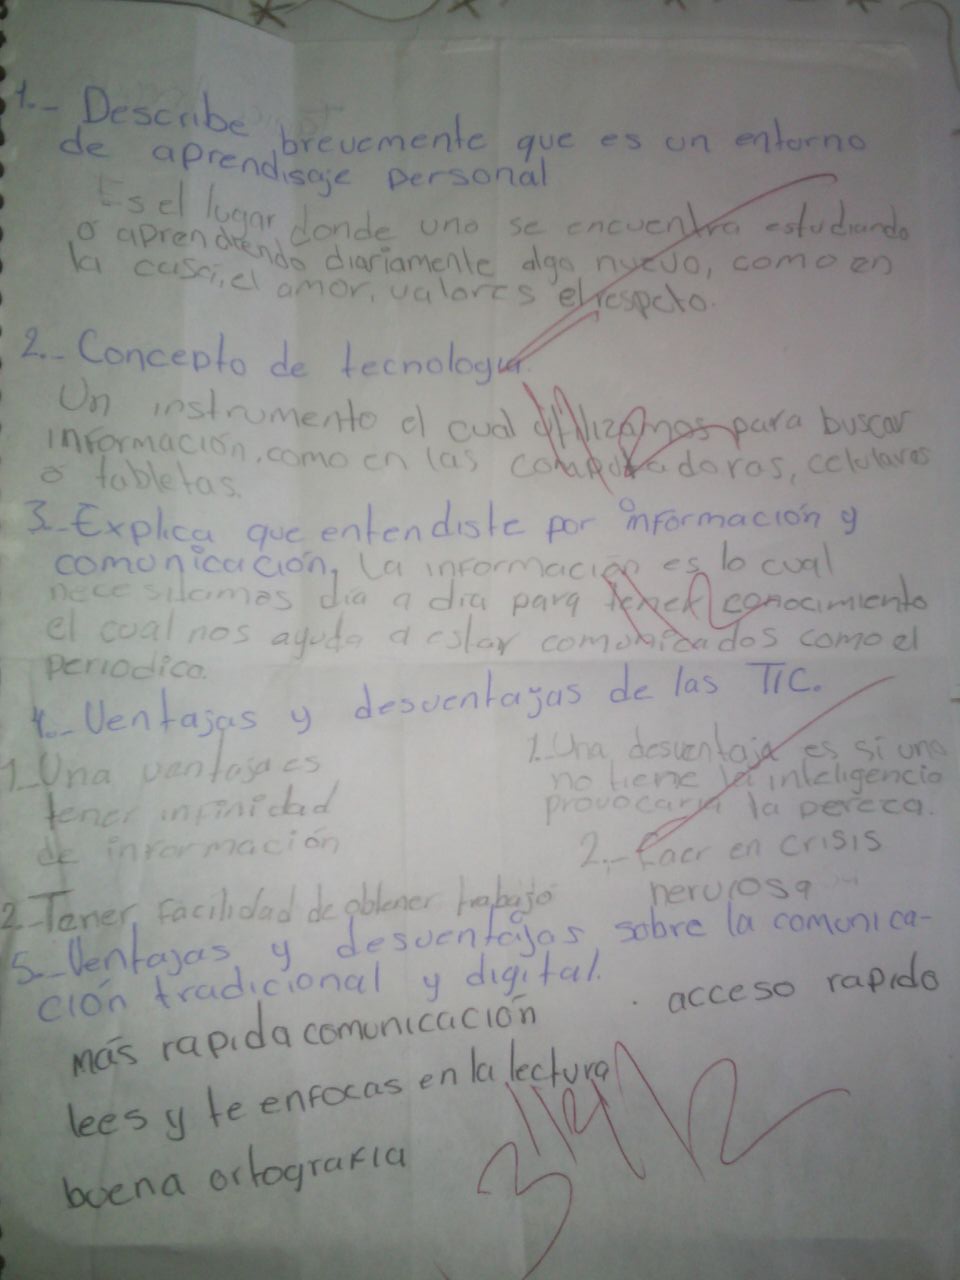 1.- Describe brevemente que es un entorno
de aprendisaje personal
Es el lugar donde uno se encuentra estudiando
o aprendiendo diariamente algo nuevo, como en
la casa, el amor, valores el respeto.
2.- Concepto de tecnologia.
Un instrumento el cual utilizamos para buscar
información, como en las computadoras, celulares
o tabletas.
3.- Explica que entendiste por información y
comunicación, La información es lo cual
necesitamos día a día para tener conocimiento
el cual nos ayuda a estar comunicados como el
periodico.
4.- Ventajas y desventajas de las TIC.
1.- Una ventaja es
tener infinidad
de información
2.- Tener facilidad de obtener trabajo
1.- Una desventaja es si uno
no tiene la inteligencia
provocaria la pereza.
2.- Caer en crisis
nerviosa
5.- Ventajas y desventajas sobre la comunica-
ción tradicional y digital.
más rapida comunicación
· acceso rapido
lees y te enfocas en la lectura
buena ortografia